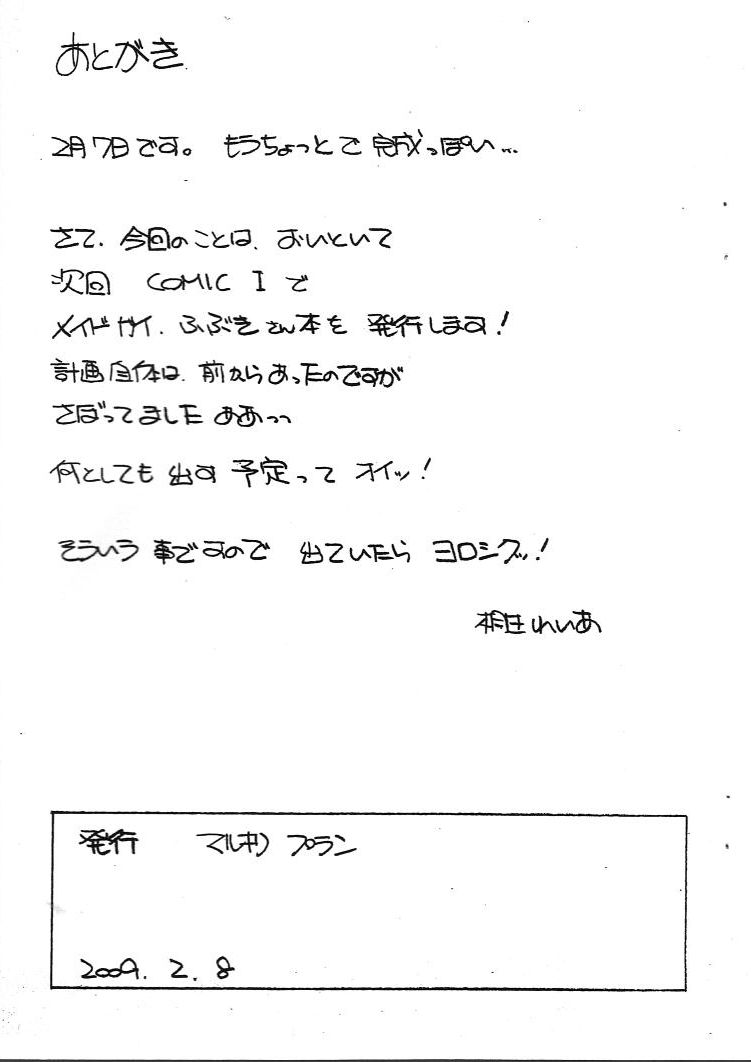 あとがき
2月7日です。 もうちょっとで 完成っぽい…
さて、今回のことは、おいといて
次回 COMIC Iで
メイドガイ、ふぶきさん本を 発行します!
計画自体は、前からあったのですが
さぼってました ああっっ
何としても 出す 予定って オイッ!
そういう 事ですので 出ていたら ヨロシクッ!
れいあ
発行 マルキ プラン
2009. 2. 8